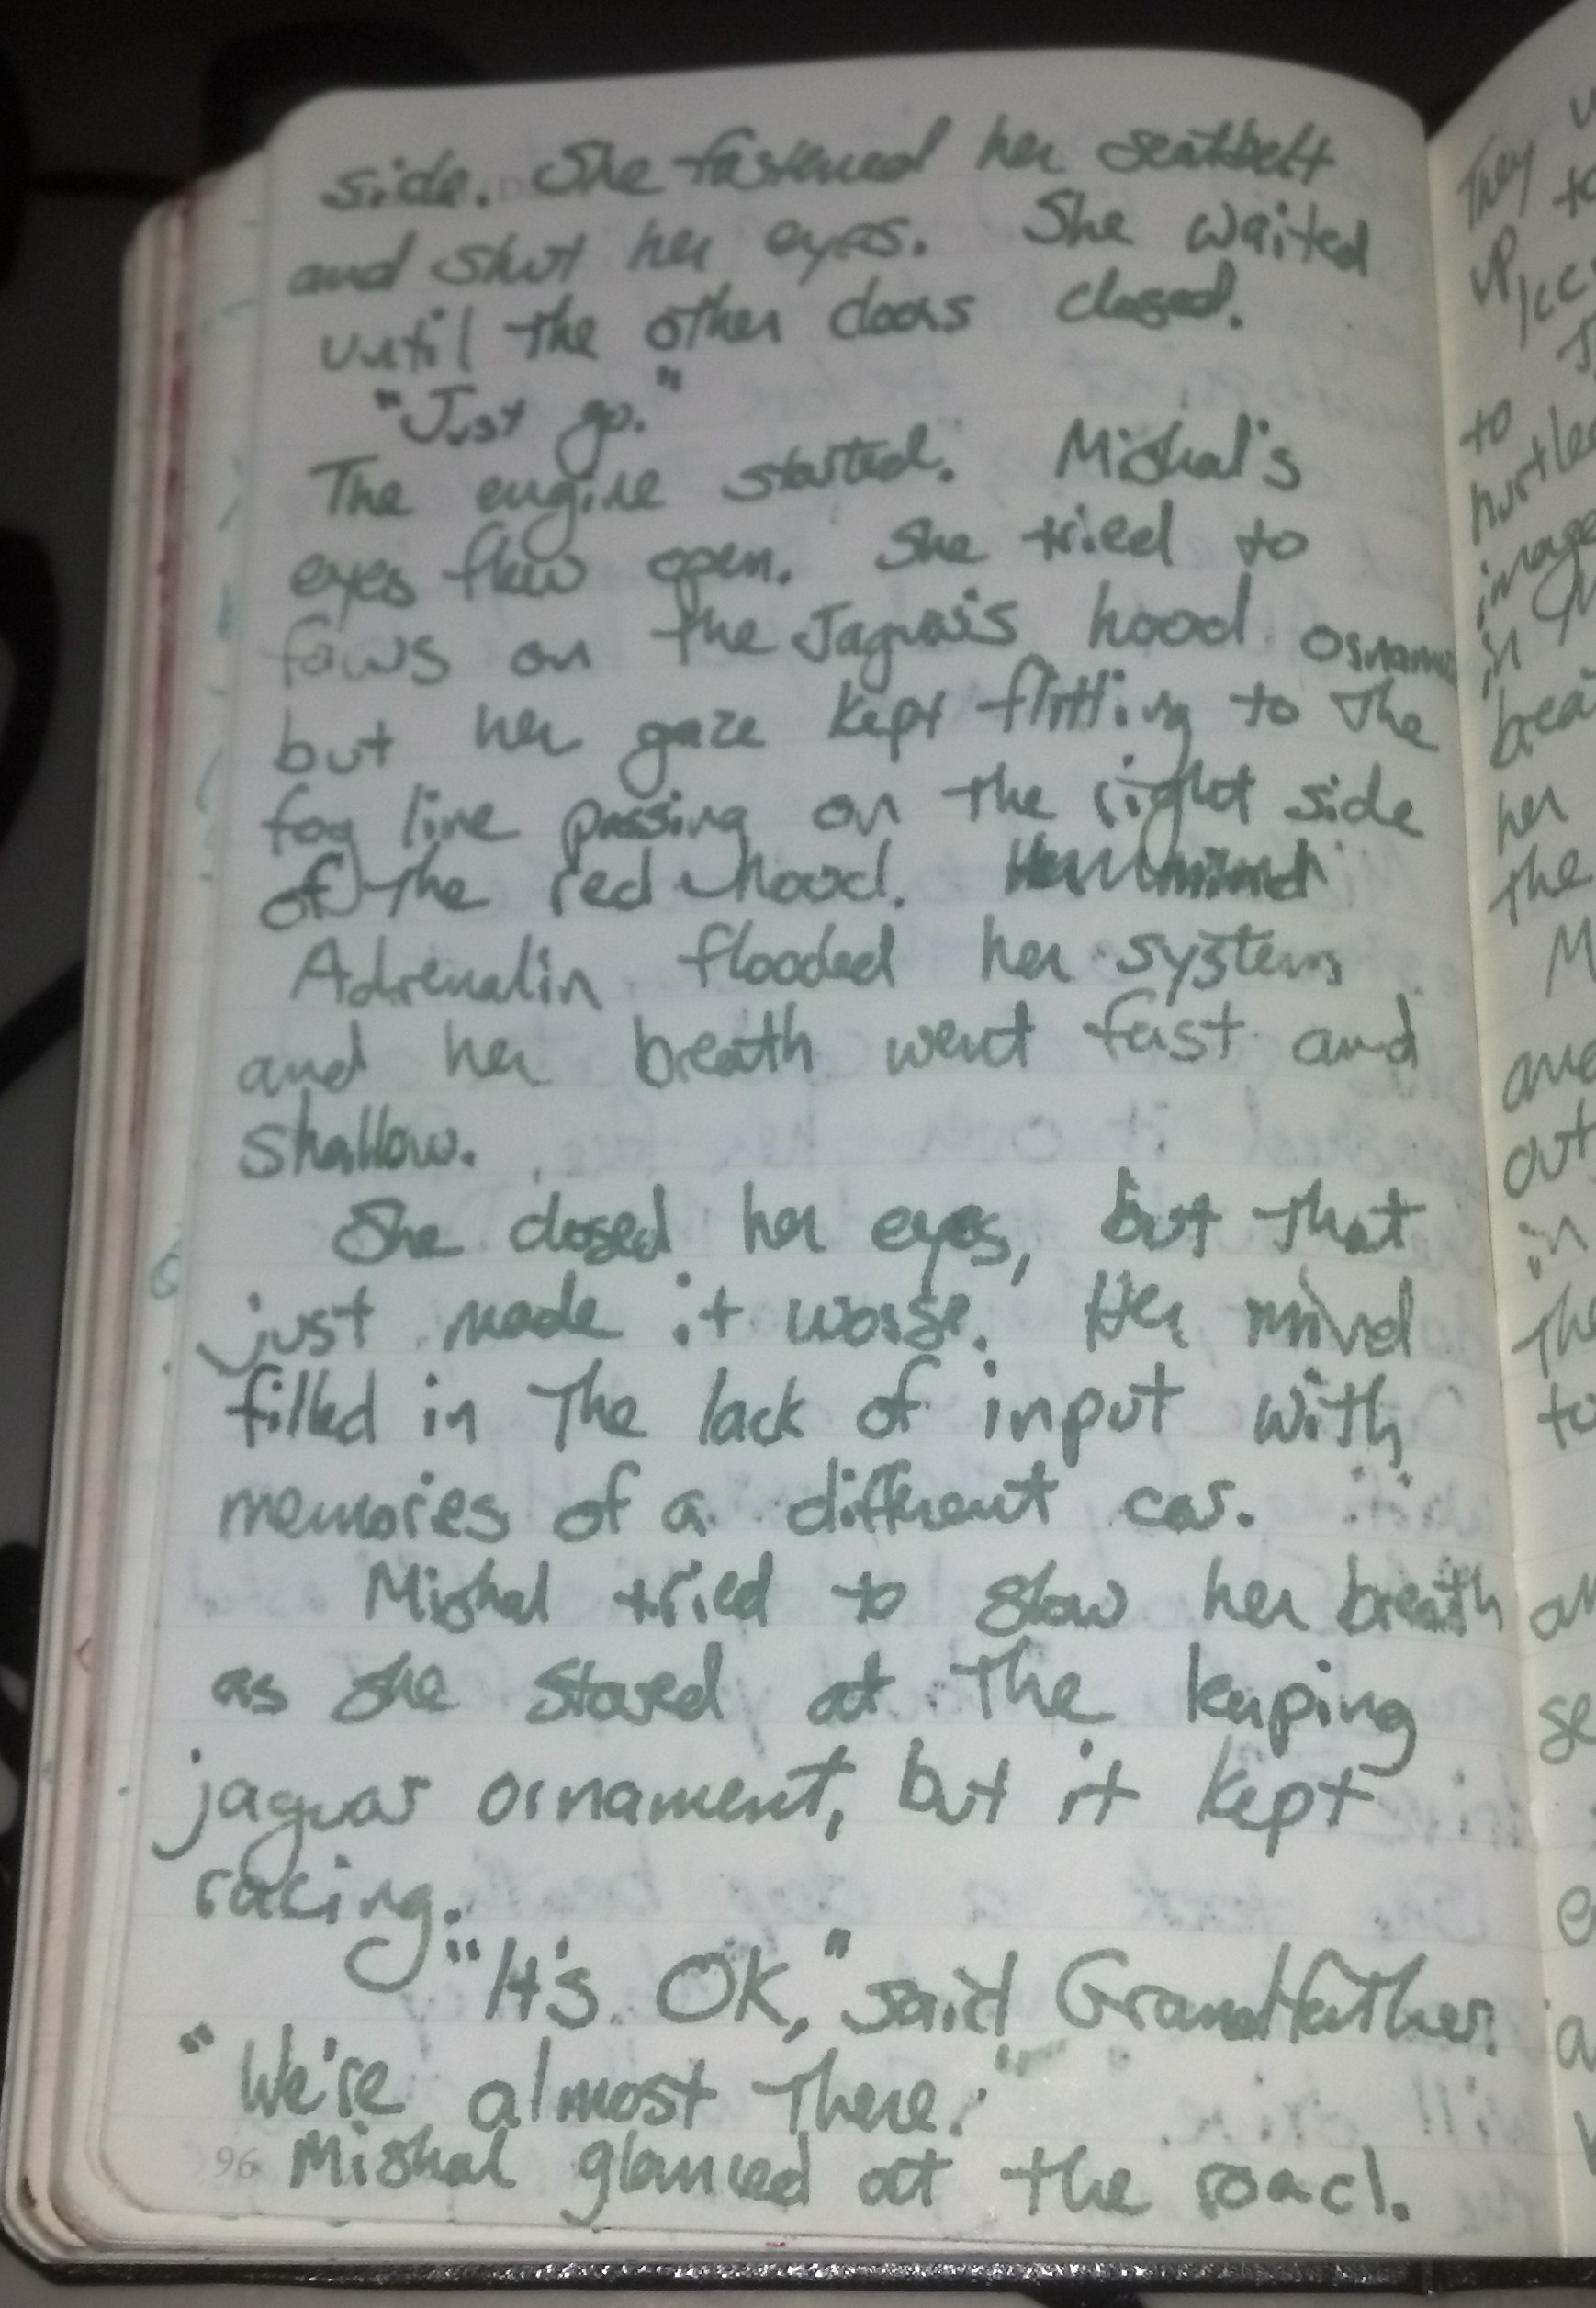 side. She fastened her seatbelt
and shut her eyes. She waited
until the other doors closed.
"Just go."
The engine started. Mishal's
eyes flew open. She tried to
focus on the Jaguar's hood
but her gaze kept flitting to the
fog line passing on the right side
of the red hood. Her mind
Adrenalin flooded her system
and her breath went fast and
shallow.
She closed her eyes, but that
just made it worse. Her mind
filled in the lack of input with
memories of a different car.
Mishal tried to slow her breath
as she stared at the leaping
jaguar ornament, but it kept
racing.
"It's OK," said Grandfather.
"We're almost there."
Mishal glanced at the road.
96
They
to
up
to
in
her
the
and
out
in